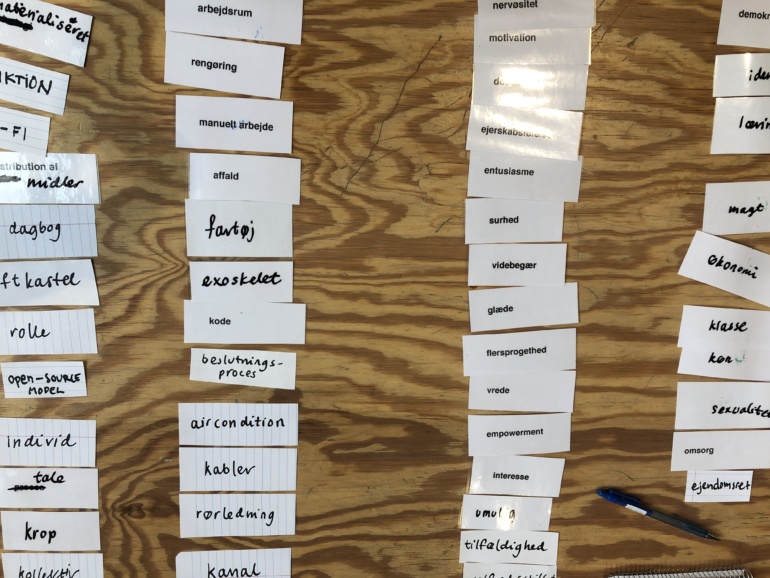 materialiseret
KTION
-FI
stribution af
midler
dagbog
ft kastel
rolle
OPEN-SOURCE
MODEL
individ
tale
krop
kollektiv
arbejdsrum
rengøring
manuelt arbejde
affald
fartøj
exoskelet
kode
beslutnings-
proces
aircondition
kabler
rørledning
kanal
nervøsitet
motivation
ejerskabsfølelse
entusiasme
surhed
videbegær
glæde
flersprogethed
vrede
empowerment
interesse
umulig
tilfældighed
demokr
iden
lærin
magt
økonomi
klasse
køn
sexualitet
omsorg
ejendomsret